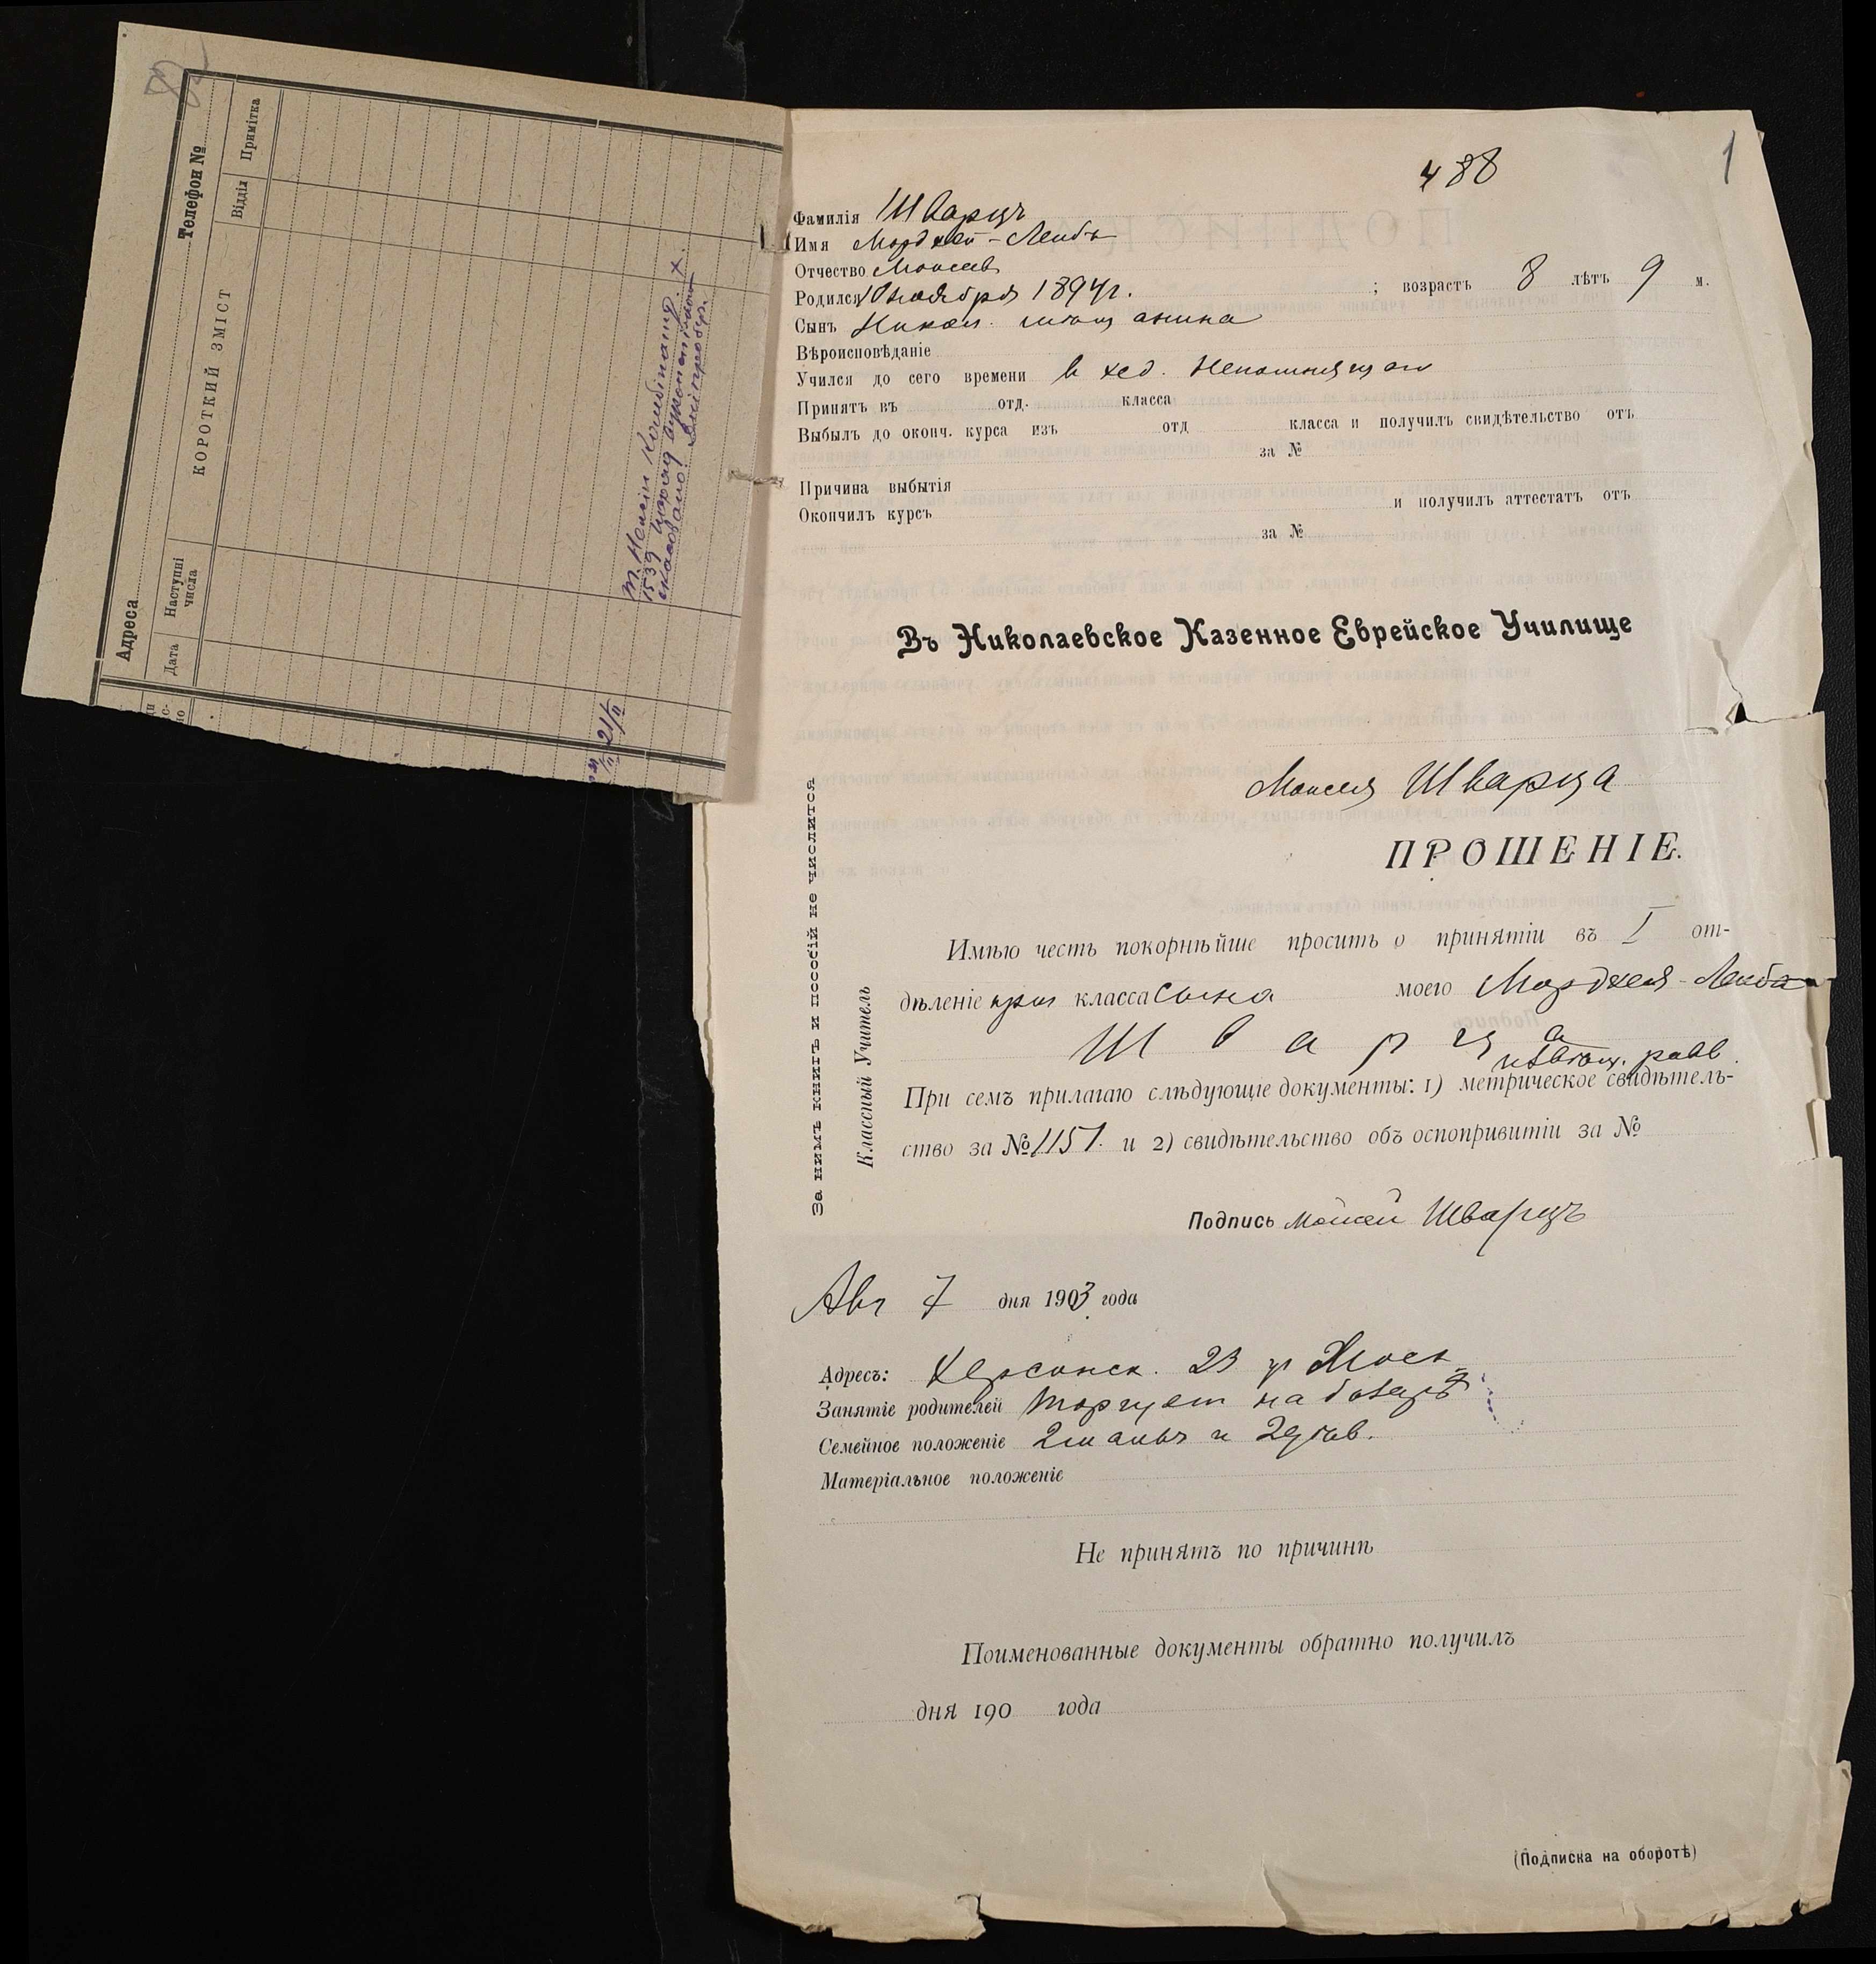 Адреса
Телефон №
Дата
Наступні числа
КОРОТКИЙ ЗМІСТ
Відділ
Примітка
1539
21/II
488
1
Фамилія Шварцъ
Имя Мордхей-Лейбъ
Отчество Моисеев
Родился 10 ноября 1894 г. ; возрастъ 8 лѣтъ 9 м.
Сынъ Никол. мѣщанина
Вѣроисповѣданіе
Учился до сего времени в хед. Непомнящаго
Принятъ въ отд. класса
Выбылъ до оконч. курса изъ отд класса и получилъ свидѣтельство отъ
за №
Причина выбытія
Окончилъ курсъ и получилъ аттестатъ отъ
за №
Въ Николаевское Казенное Еврейское Училище
Моисея Шварца
ПРОШЕНІЕ.
Имѣю честь покорнѣйше просить о принятіи въ I от-
дѣленіе приг класса сына моего Мордхея-Лейба
Шварца
При семъ прилагаю слѣдующіе документы: 1) метрическое свидѣтель-
ство за № 1151. и 2) свидѣтельство объ оспопривитіи за №
Подпись Мойсей Шварцъ
Авг 7 дня 1903 года
Адресъ: Херсонск. 23
Занятіе родителей торгует на базарѣ
Семейное положеніе 2 мальч и 2 дѣв.
Матеріальное положеніе
Не принятъ по причинѣ
Поименованные документы обратно получилъ
дня 190 года
(Подписка на оборотѣ)
За нимъ книгъ и пособій не числится
Классный Учитель